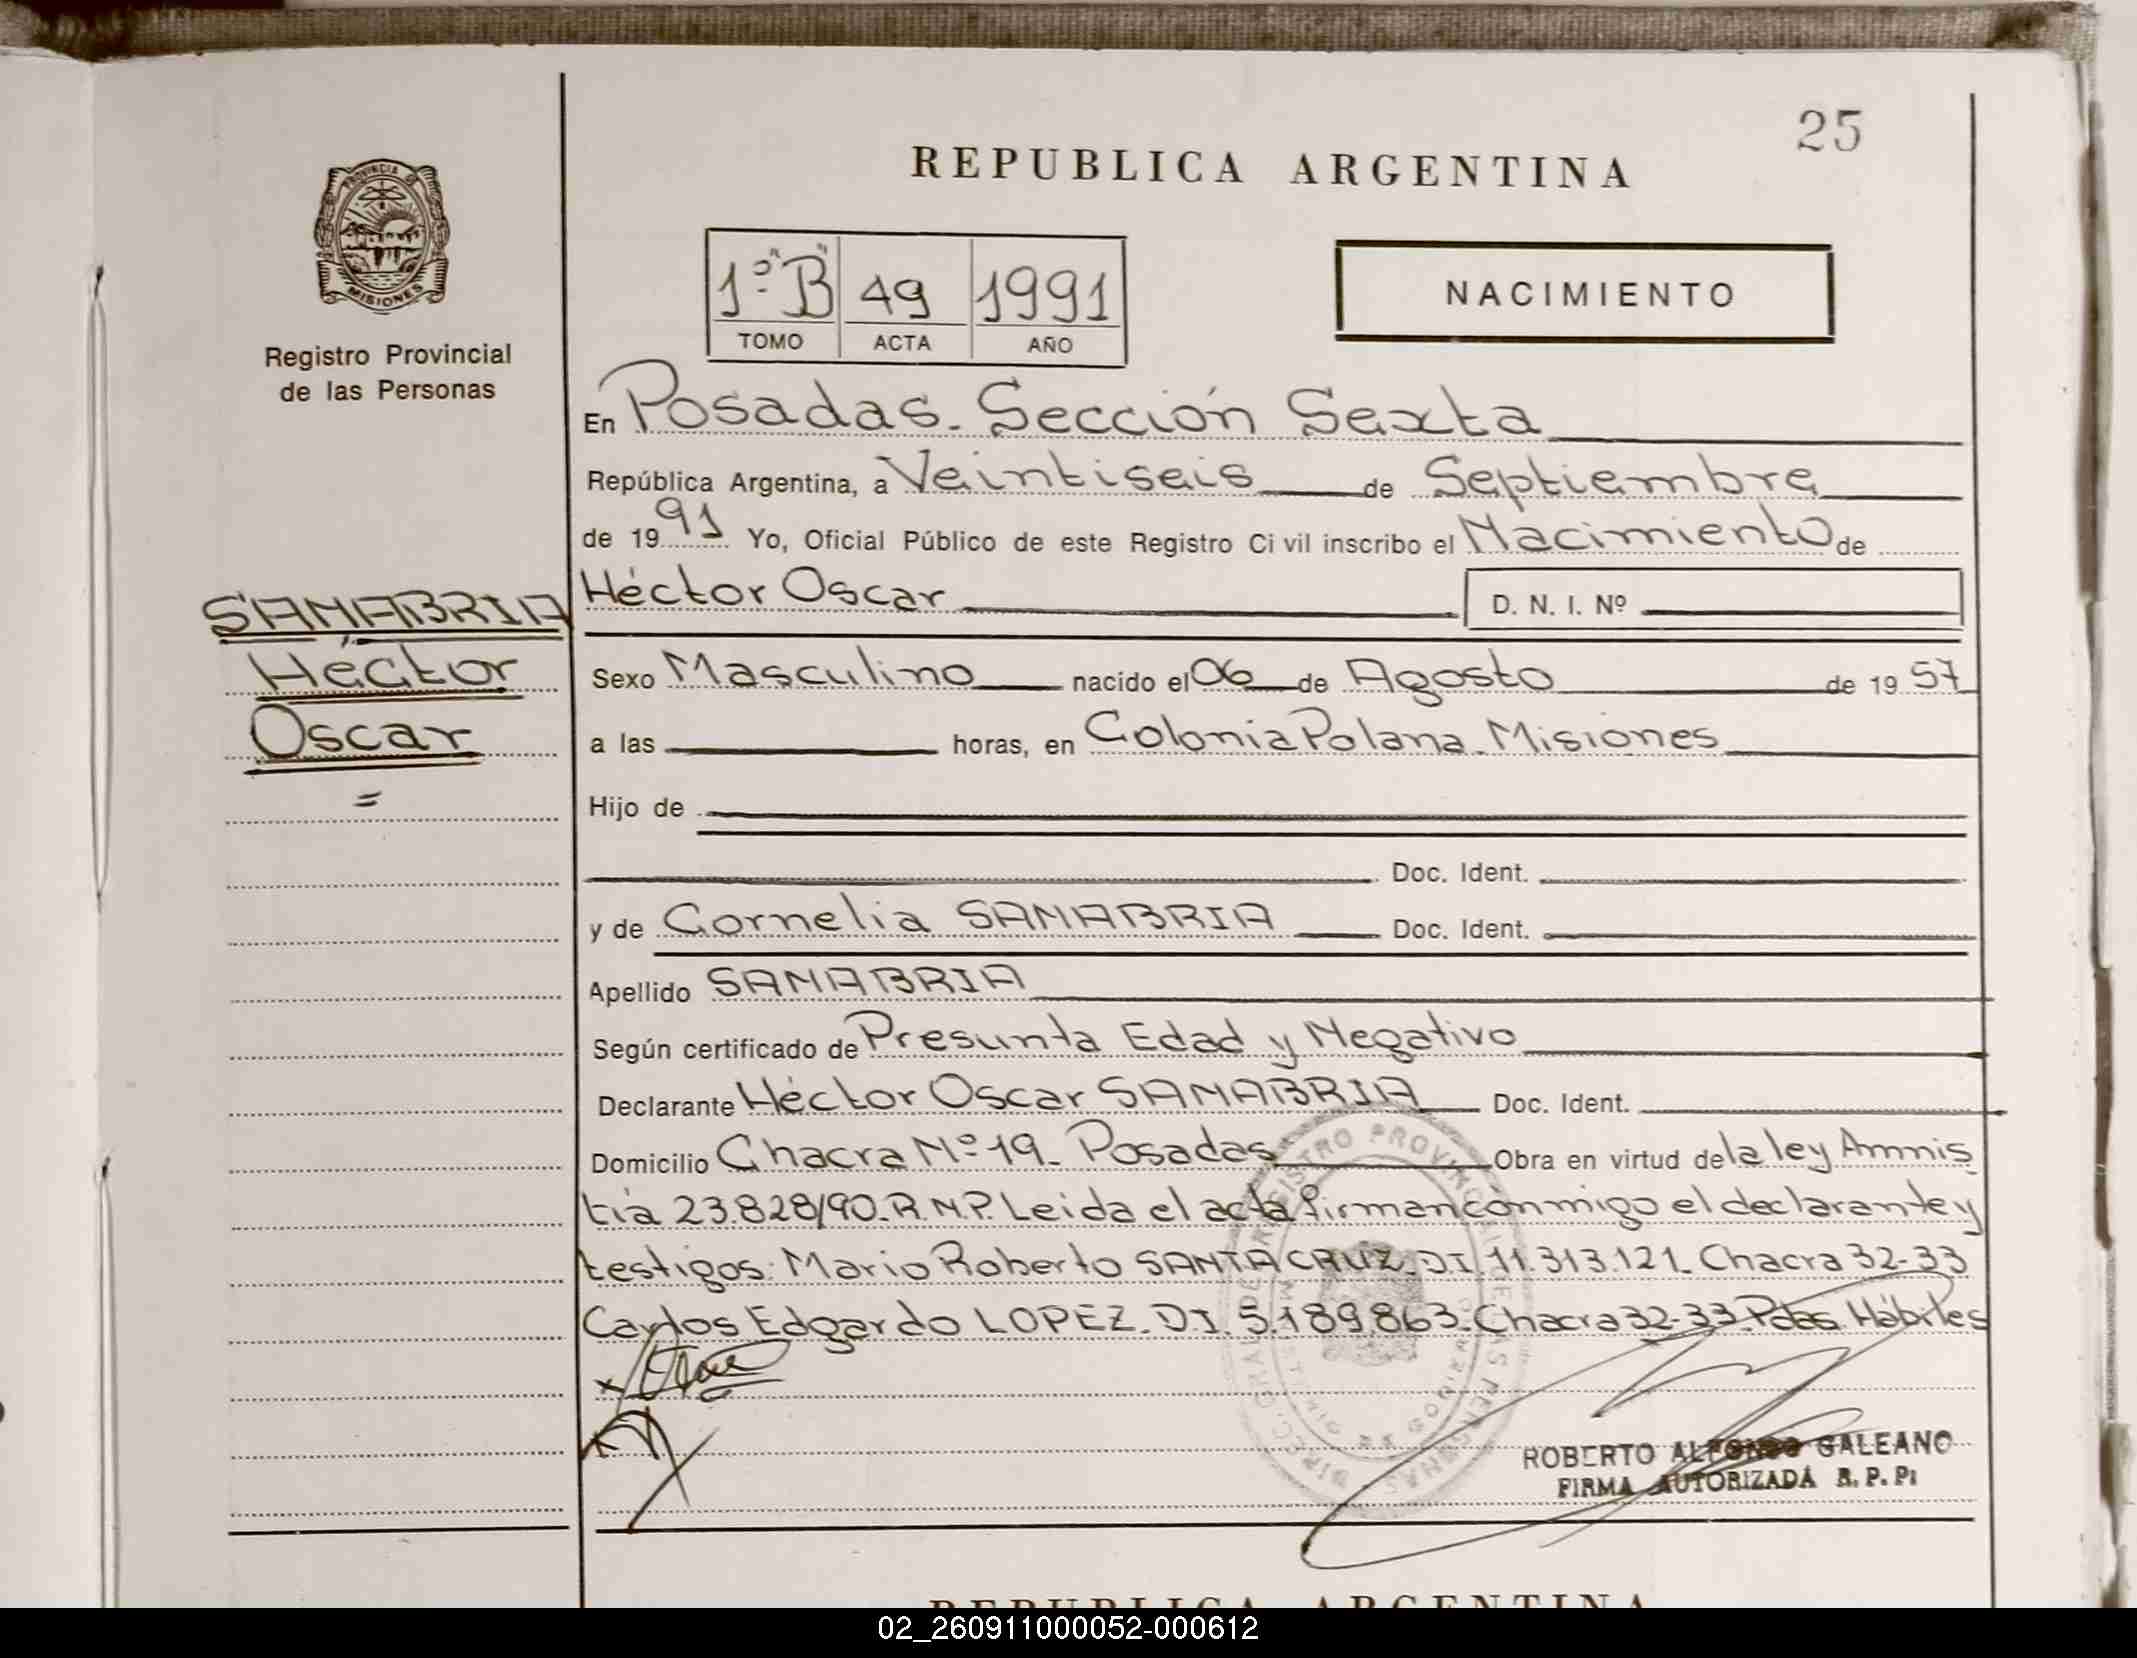 25
REPUBLICA ARGENTINA
PROVINCIA DE
MISIONES
Registro Provincial
de las Personas
1º "B" 49 1991
TOMO ACTA AÑO
NACIMIENTO
En Posadas. Sección Sexta
República Argentina, a Veintiseis de Septiembre
de 1991 Yo, Oficial Público de este Registro Civil inscribo el Nacimiento de
SANABRIA
Héctor
Oscar
Héctor Oscar D. N. I. Nº
Sexo Masculino nacido el 06 de Agosto de 1957
a las horas, en Colonia Polana. Misiones
Hijo de
Doc. Ident.
y de Cornelia SANABRIA Doc. Ident.
Apellido SANABRIA
Según certificado de Presunta Edad y Negativo
Declarante Héctor Oscar SANABRIA Doc. Ident.
Domicilio Chacra Nº 19. Posadas Obra en virtud de la ley Amnis
tia 23.828/90. R.N.P. Leida el acta firman conmigo el declarante y
testigos: Mario Roberto SANTA CRUZ. DI 11.313.121. Chacra 32-33
Carlos Edgardo LOPEZ. DI. 5.189.863. Chacra 32-33. Pdas. Hábiles
ROBERTO ALFONSO GALEANO
FIRMA AUTORIZADA R. P. P.
REPUBLICA ARGENTINA
02_260911000052-000612